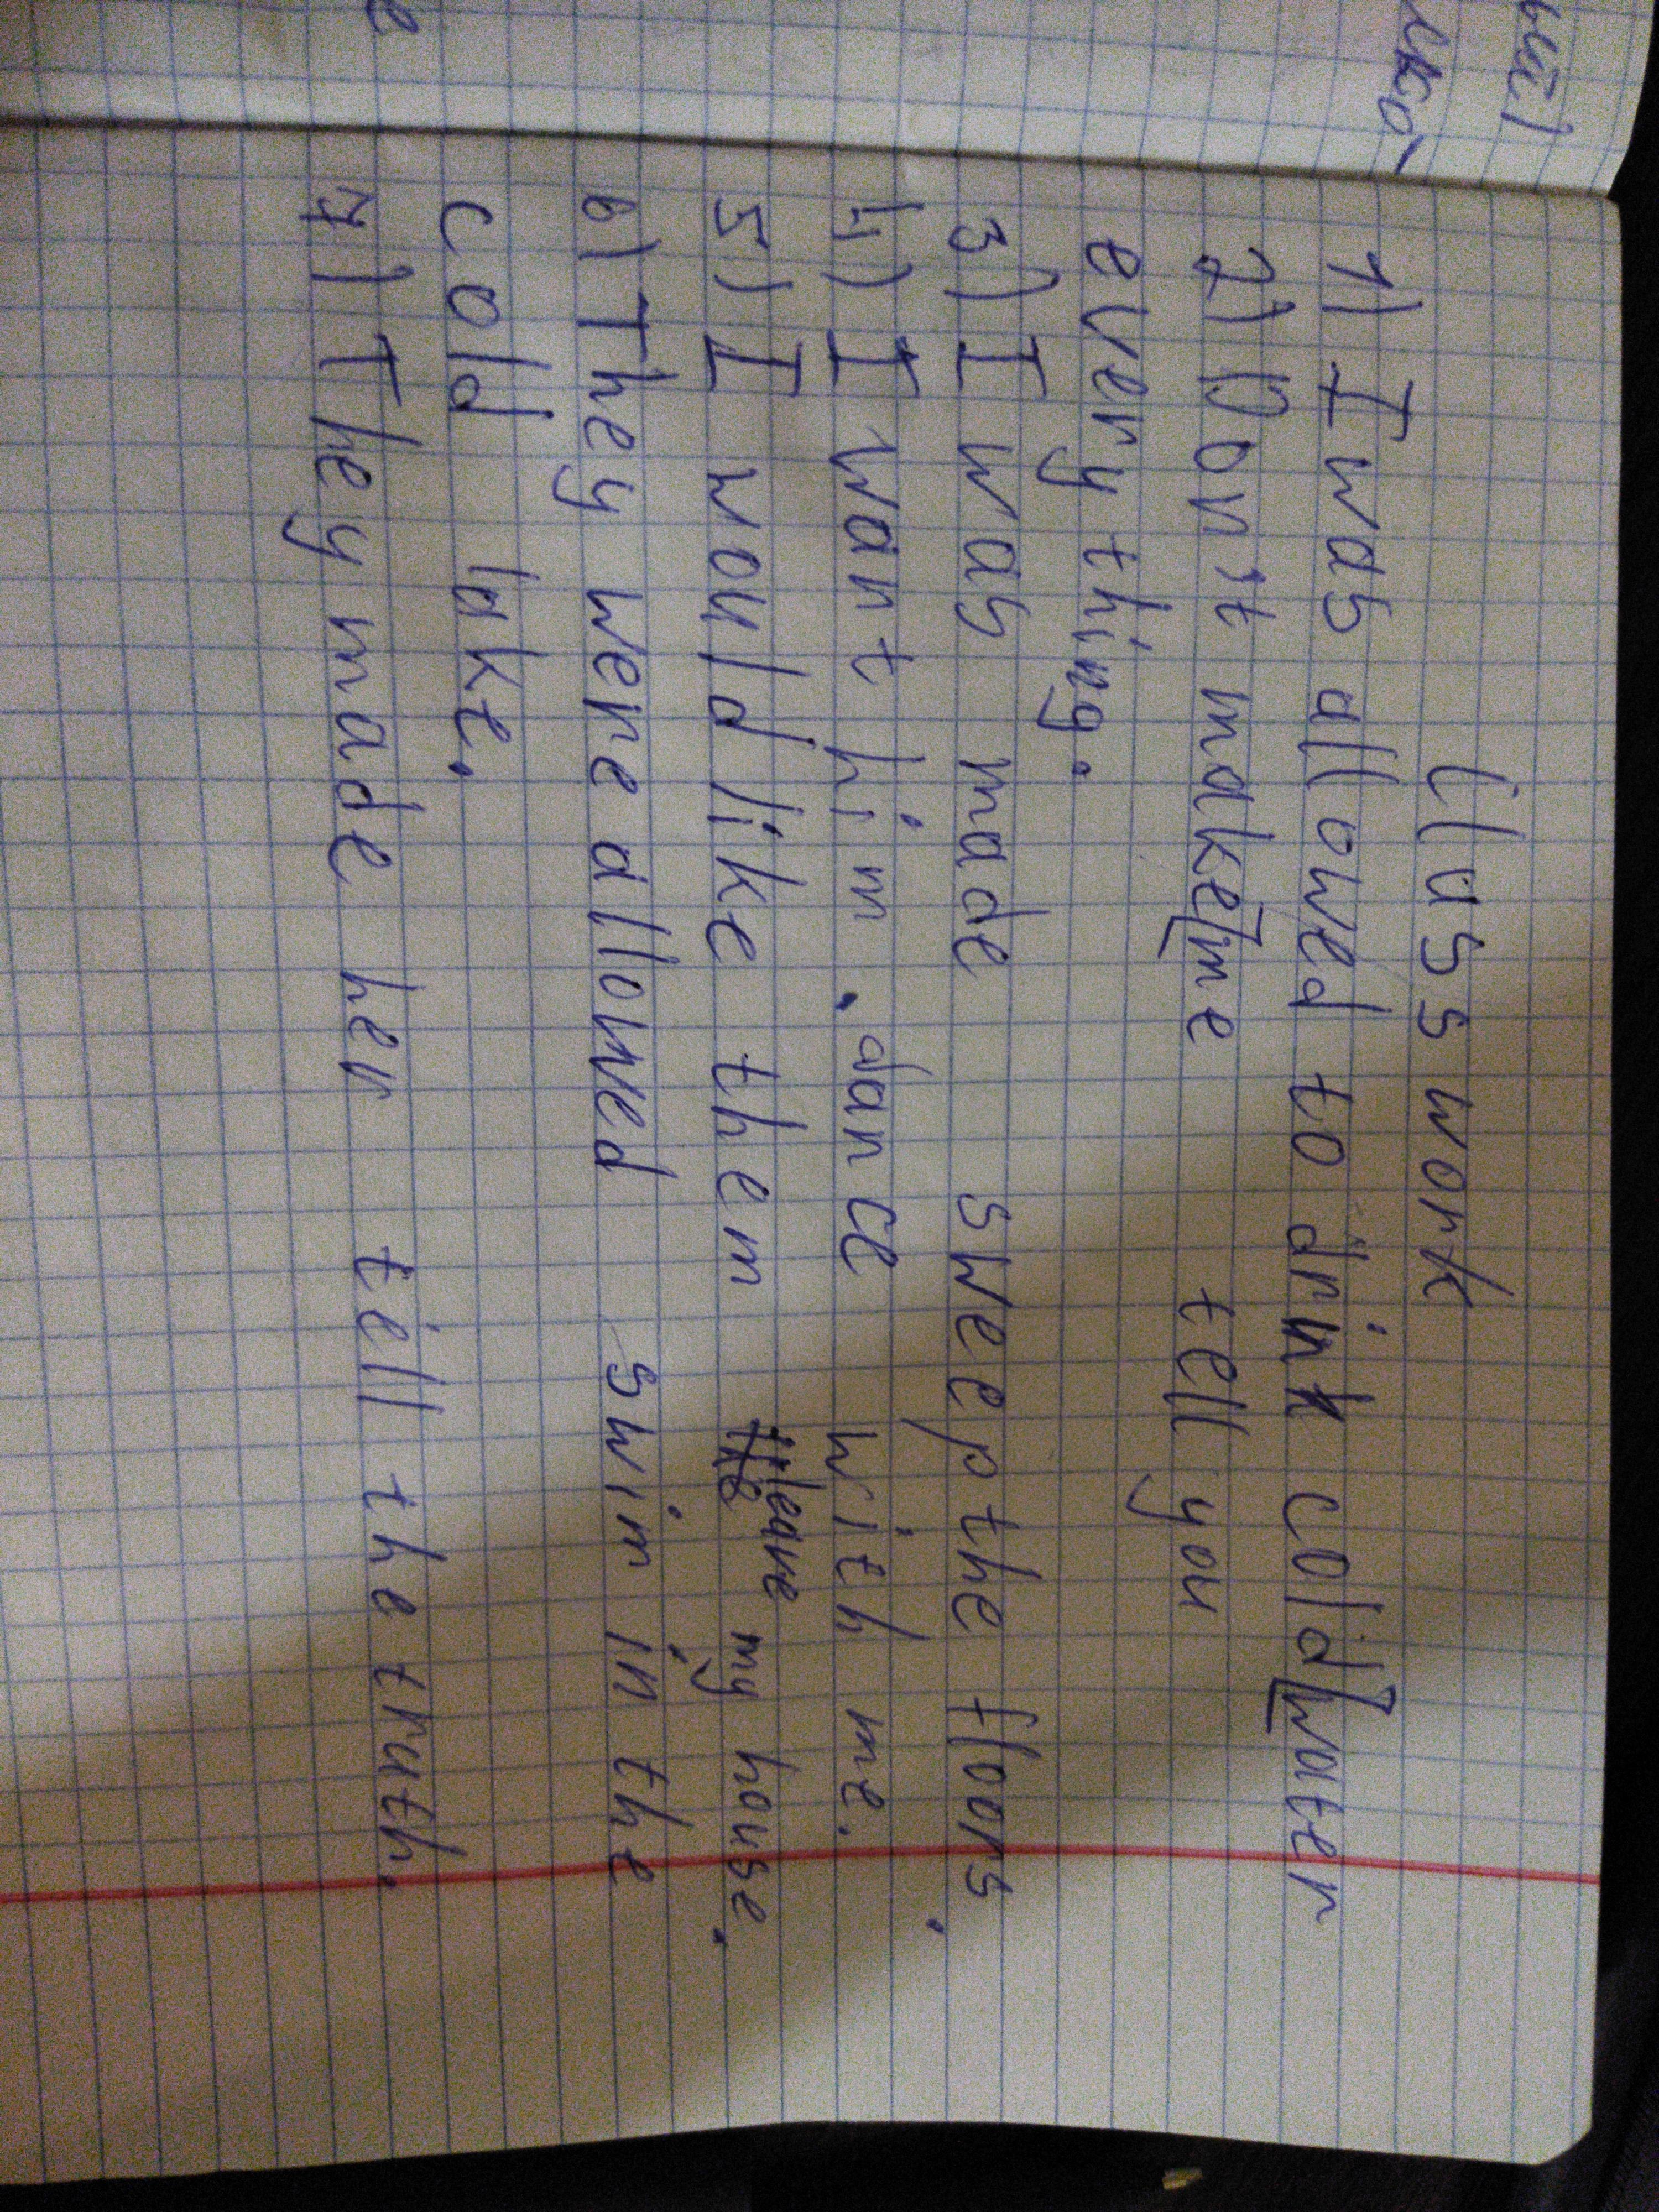 Class work
1) I was allowed to drink cold water
2) Don't make me tell you
everything.
3) I was made sweep the floors.
4) I want him dance with me.
5) I would like them leave my house.
6) They were allowed swim in the
cold lake.
7) They made her tell the truth.